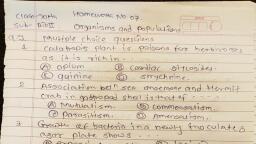 Class-10th Homework No 07
Sub- Bio II Organisms and Populations
Q.1 Multiple choice questions
1 Calatropis plant is poisons for herbivores
as it is rich in -
A opium B Cardiac glycosides.
C quinine D strychnine.
2 Association betn sea anemone and Hermit
crab in gastropod shell is that of - - - -
A Mutualism. B Commensalism.
C Parasitism. D Amensalism.
3 Growth of bacteria in a newly inoculated
agar plate shows - - -